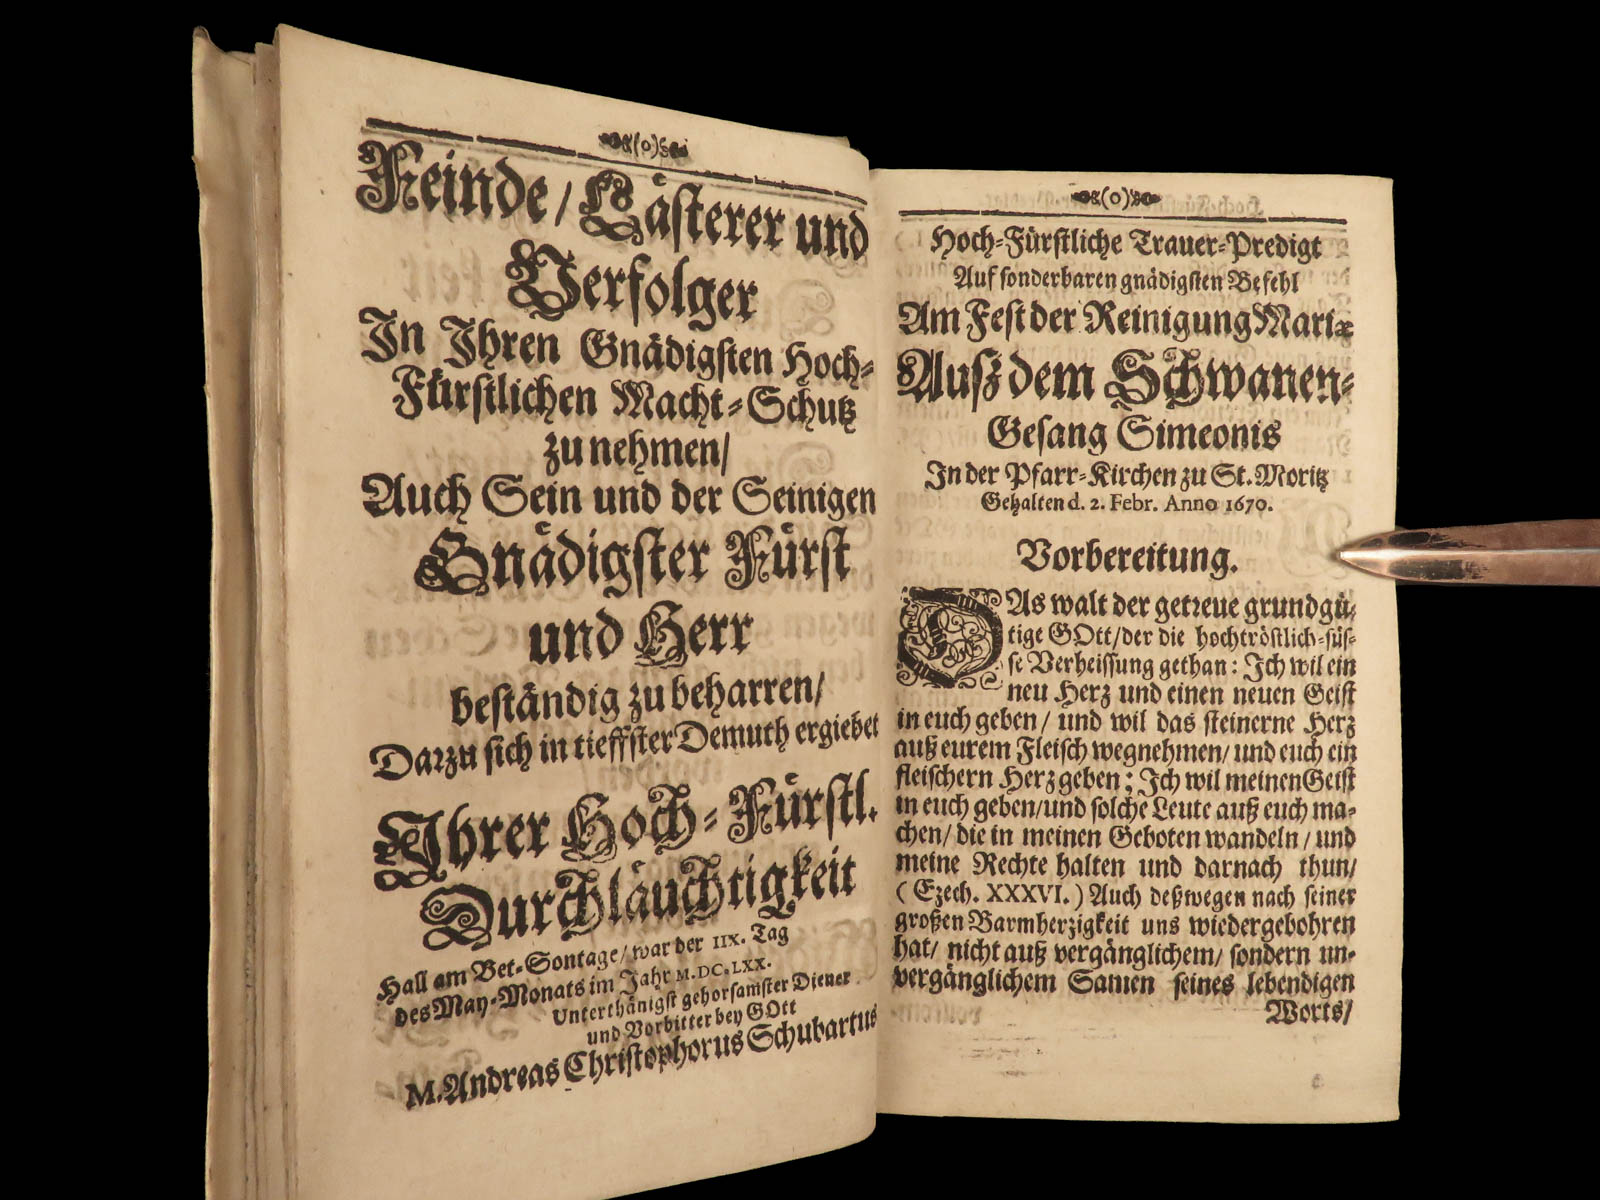 Feinde / Lästerer und
Verfolger
In Ihren Gnädigsten Hoch-
Fürstlichen Macht-Schutz
zu nehmen/
Auch Sein und der Seinigen
Gnädigster Fürst
und Herr
beständig zu beharren/
Darzu sich in tieffster Demuth ergiebet
Ihrer Hoch-Fürstl.
Durchläuchtigkeit
Hall am Bet-Sontage/ war der IIX. Tag
des May-Monats im Jahr M.DC.LXX.
Unterthänigst gehorsamster Diener
und Vorbitter bey GOtt
M. Andreas Christophorus Schubartus
(o)
Hoch-Fürstliche Trauer-Predigt
Auf sonderbaren gnädigsten Befehl
Am Fest der Reinigung Mariæ
Auß dem Schwanen-
Gesang Simeonis
In der Pfarr-Kirchen zu St. Moritz
Gehalten d. 2. Febr. Anno 1670.
Vorbereitung.
DAs walt der getreue grundgü-
tige GOtt/ der die hochtröstlich-süs-
se Verheissung gethan: Ich wil ein
neu Herz und einen neuen Geist
in euch geben / und wil das steinerne Herz
auß eurem Fleisch wegnehmen/ und euch ein
fleischern Herz geben; Ich wil meinen Geist
in euch geben/ und solche Leute auß euch ma-
chen/ die in meinen Geboten wandeln / und
meine Rechte halten und darnach thun/
(Ezech. XXXVI.) Auch deßwegen nach seiner
großen Barmherzigkeit uns wiedergebohren
hat/ nicht auß vergänglichem/ sondern un-
vergänglichem Samen seines lebendigen
Worts/